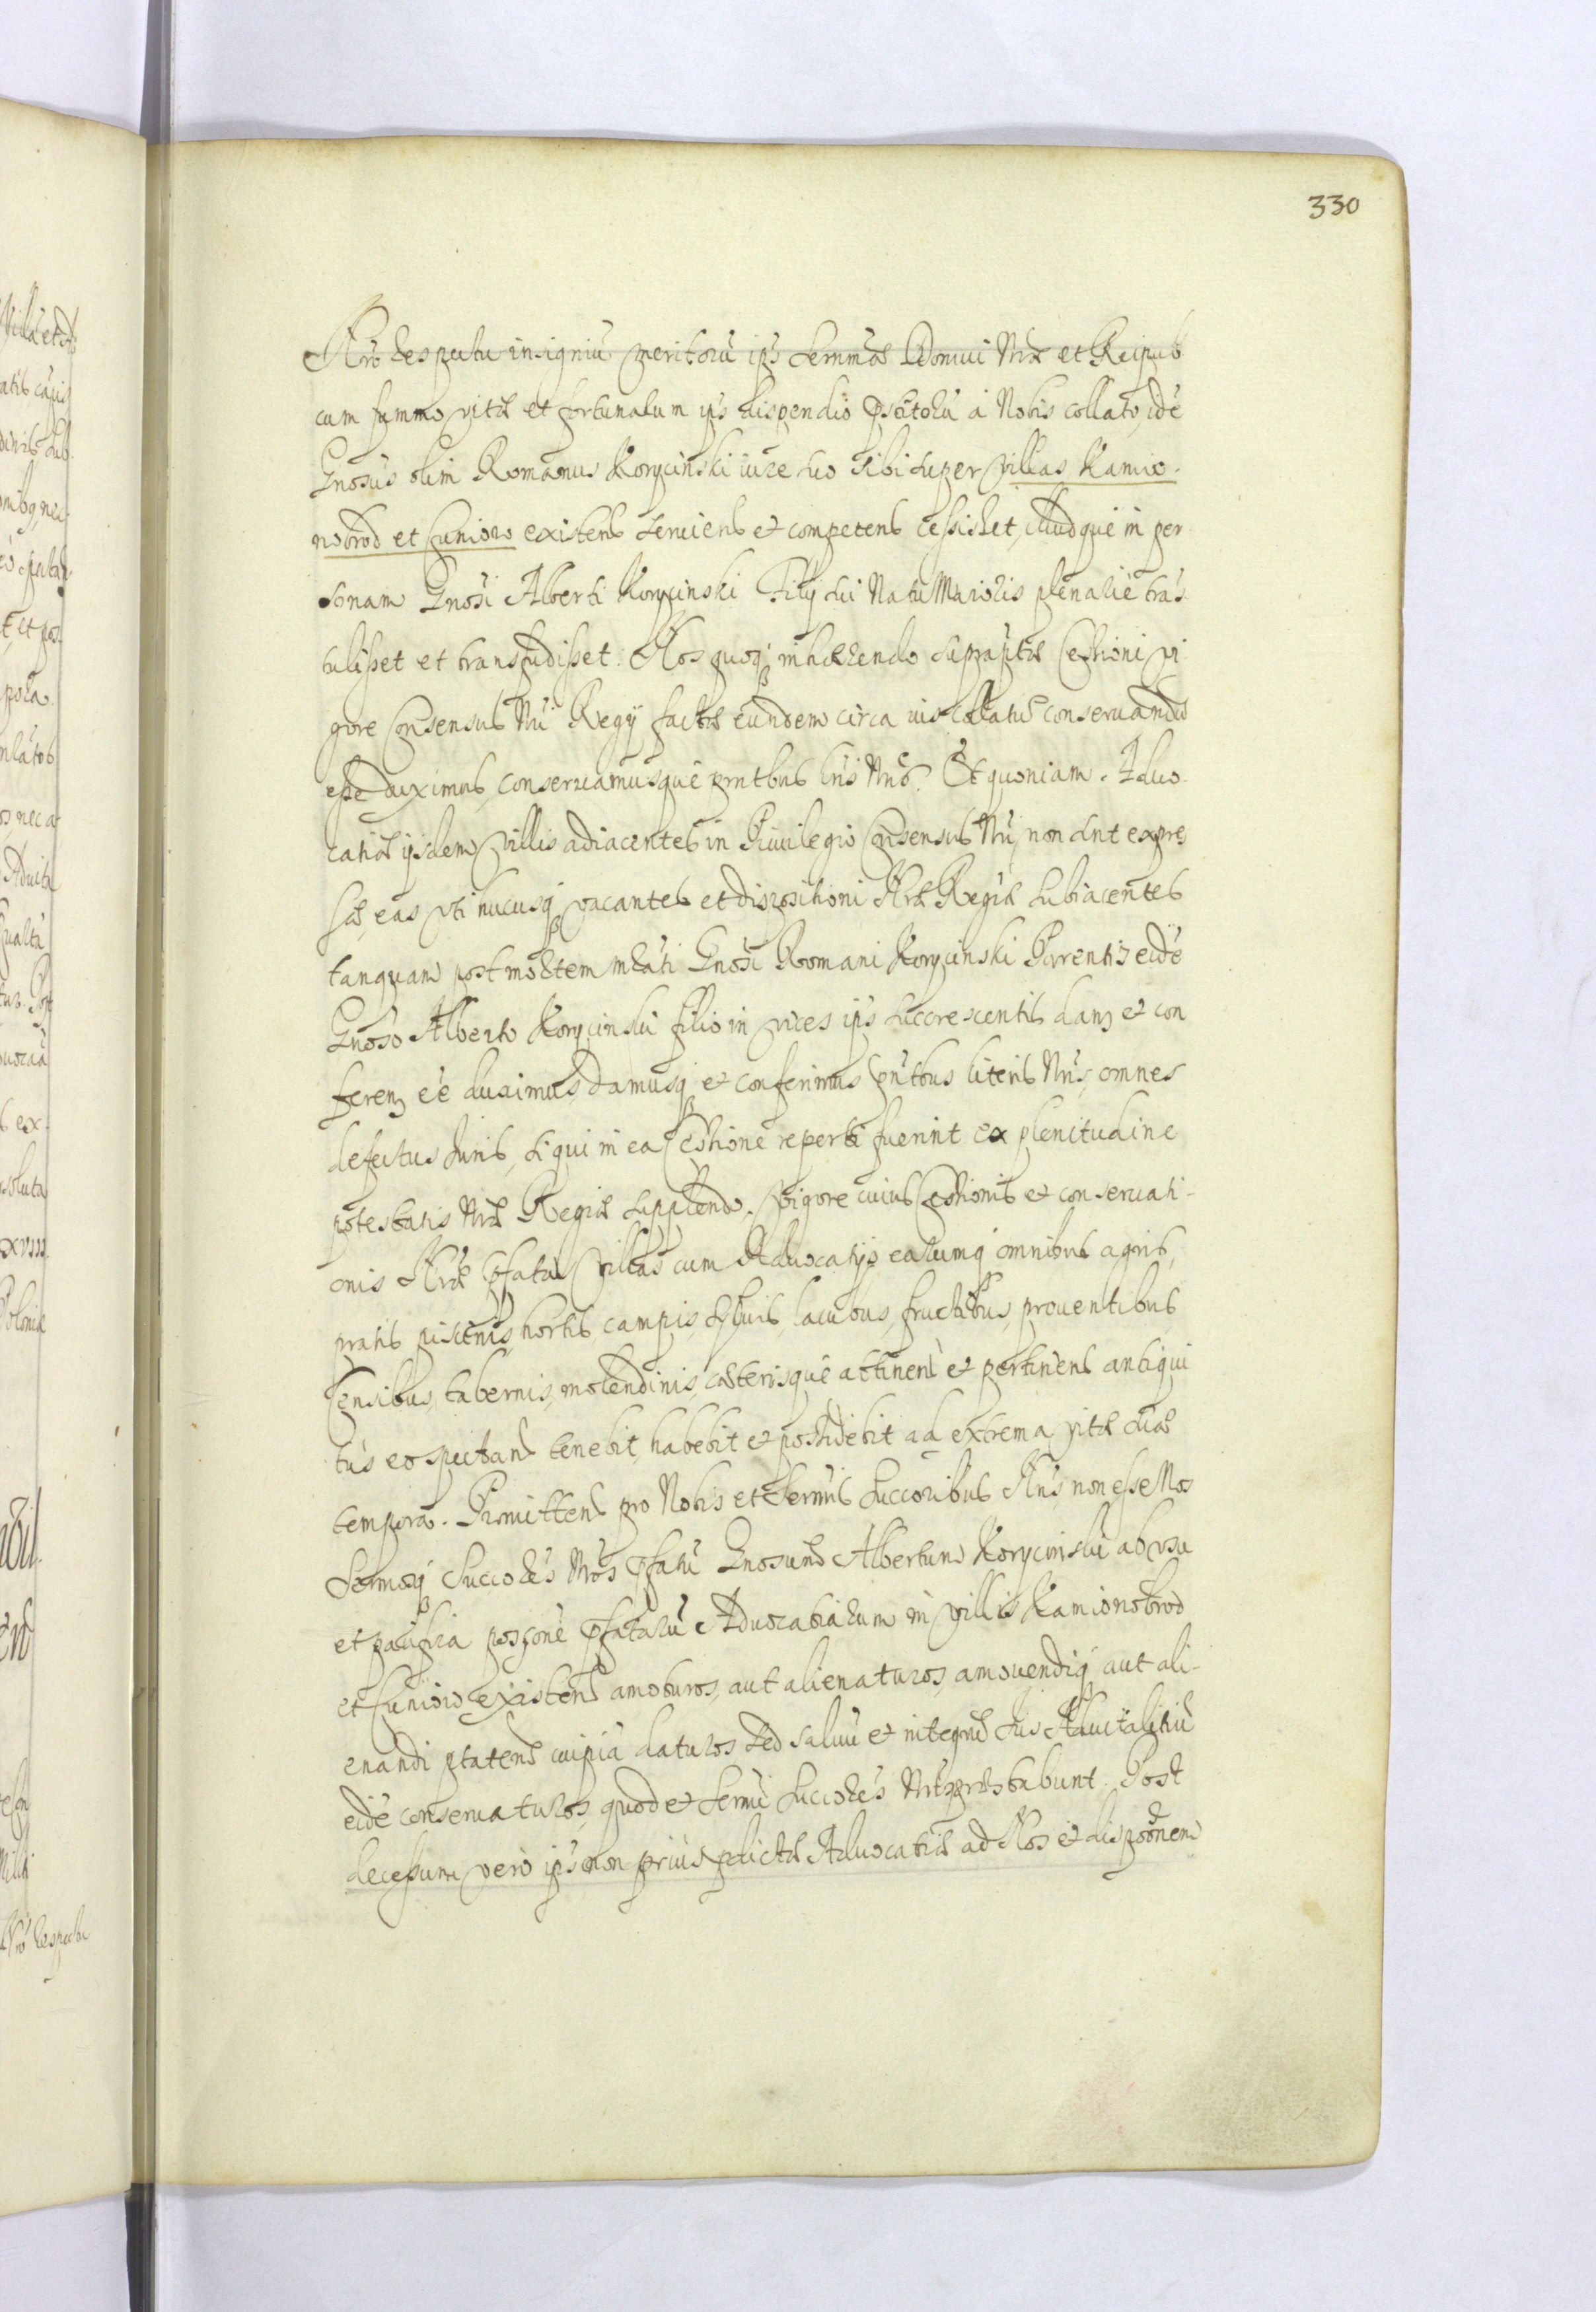 330
Nrõ respectu insigniũ meritorũ ips Sermmæ Domui Nræ et Reipub
cum summo vitæ et fortunalum ips dispendio Pstitorũ à Nobis collato, idẽ
Gnosus olim Romanus Korycinski iure suo sibi super villas Kamio-
nobrod et Cuniow existens serviens et competens cessisset, illudque in per
sonam Gnosi Alberti Korycinski Filij sui Natu Maioris plenarie trãs
tulisset et transfudisset. Nos quoq; inhærendo supraptæ Cessioni vi
gore Consensus Nri Regij factæ eundem circa ius collatũ conservandũ
esse duximus, conservamusque pntbus lris Nris. Et quoniam Advo
catiæ ijsdem villis adiacentes in Privilegio Consensus Nri, non snt expres
sæ, eas vti hucusq; vacantes et dispositioni Nræ Regiæ subiacentes
tanquam post mortem mlãti Gnosi Romani Korycinski Parentis eidẽ
Gnoso Alberto Korycinski filio in vices ips succrescentis dans et con
ferens eẽ duximus, damusq; et conferimus pntbus literis Nris, omnes
defectus Juris, si qui in ea Cessione reperti fuerint ex plenitudine
potestatis Nræ Regiæ supplendo. Vigore cuius Cessionis et conservati-
onis Nræ pfatas villas cum Advocatijs earumq; omnibus agris,
pratis piscinis, hortis campis, sylvis, lacubus, fructibus, proventibus,
Censibus, tabernis, molendinis, cæterisque attinen et pertinen antiqui
tus eo spectan tenebit, habebit et possidebit ad extrema vitæ suæ
tempora. Promitten pro Nobis et Sermis Succoribus Nris, non esse Nos
Sermosq; Succores Nros pfatũ Gnosum Albertum Korycinski ab vsu
et pacifica possone pfatarũ Advocatiarum in villis Kamionobrod
et Cuniow existen amoturos, aut alienaturos, amovendiq; aut ali-
enandi ptatem cuipiã daturos, sed salvũ et integrũ Jus Advitalitiũ
eidẽ conservaturos, quod et Sermi Succores Nri præstabunt. Post
decessum vero ips non prius pdictæ Advocatiæ ad Nos et disposonem